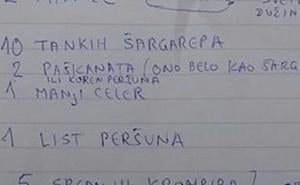 DUŽIN
10 TANKIH ŠARGAREPA
2 PAŠKANATA (ONO BELO KAO ŠARG
ILI KOREN PERŠUNA
1 MANJI CELER
1 LIST PERŠUNA
5 KROMPIRA